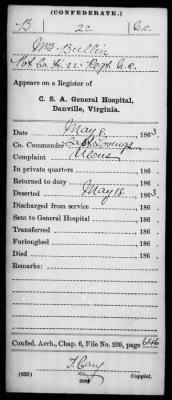 (CONFEDERATE.)
B 22 N.C.
Wm Bullin
Pvt Co. H. 22 Regt N.C.
Appears on a Register of
C. S. A. General Hospital,
Danville, Virginia.
Date May 8, 1863
Co. Commander Capt
Complaint Ulcus
In private quarters , 186
Returned to duty , 186
Deserted May 18, 1863
Discharged from service , 186
Sent to General Hospital , 186
Transferred , 186
Furloughed , 186
Died , 186
Remarks:
Confed. Arch., Chap. 6, File No. 209, page 646
(635)
Copyist.